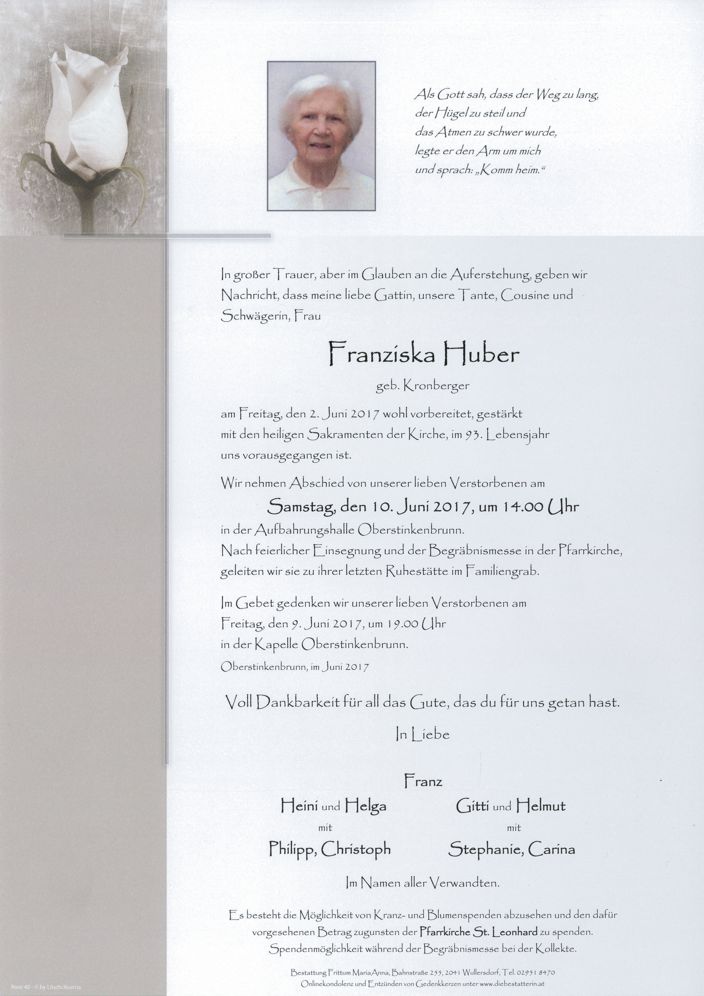 Als Gott sah, dass der Weg zu lang,
der Hügel zu steil und
das Atmen zu schwer wurde,
legte er den Arm um mich
und sprach: „Komm heim.“
In großer Trauer, aber im Glauben an die Auferstehung, geben wir
Nachricht, dass meine liebe Gattin, unsere Tante, Cousine und
Schwägerin, Frau
Franziska Huber
geb. Kronberger
am Freitag, den 2. Juni 2017 wohl vorbereitet, gestärkt
mit den heiligen Sakramenten der Kirche, im 93. Lebensjahr
uns vorausgegangen ist.
Wir nehmen Abschied von unserer lieben Verstorbenen am
Samstag, den 10. Juni 2017, um 14.00 Uhr
in der Aufbahrungshalle Oberstinkenbrunn.
Nach feierlicher Einsegnung und der Begräbnismesse in der Pfarrkirche,
geleiten wir sie zu ihrer letzten Ruhestätte im Familiengrab.
Im Gebet gedenken wir unserer lieben Verstorbenen am
Freitag, den 9. Juni 2017, um 19.00 Uhr
in der Kapelle Oberstinkenbrunn.
Oberstinkenbrunn, im Juni 2017
Voll Dankbarkeit für all das Gute, das du für uns getan hast.
In Liebe
Franz
Heini und Helga
mit
Philipp, Christoph
Gitti und Helmut
mit
Stephanie, Carina
Im Namen aller Verwandten.
Es besteht die Möglichkeit von Kranz- und Blumenspenden abzusehen und den dafür
vorgesehenen Betrag zugunsten der Pfarrkirche St. Leonhard zu spenden.
Spendenmöglichkeit während der Begräbnismesse bei der Kollekte.
Bestattung Frittum MariaAnna, Bahnstraße 255, 2041 Wullersdorf, Tel. 02951 8470
Onlinekondolenz und Entzünden von Gedenkkerzen unter www.diebestatterin.at